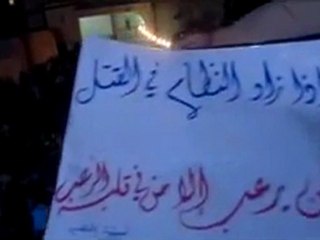 إذا زاد النظام في القتل
يرعب إلا من في قلبه الرعب